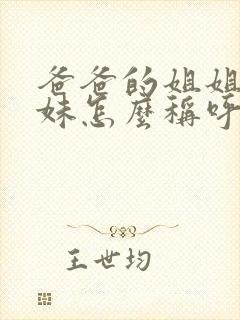 爸爸的姐姐
妹怎麼稱呼
王世均